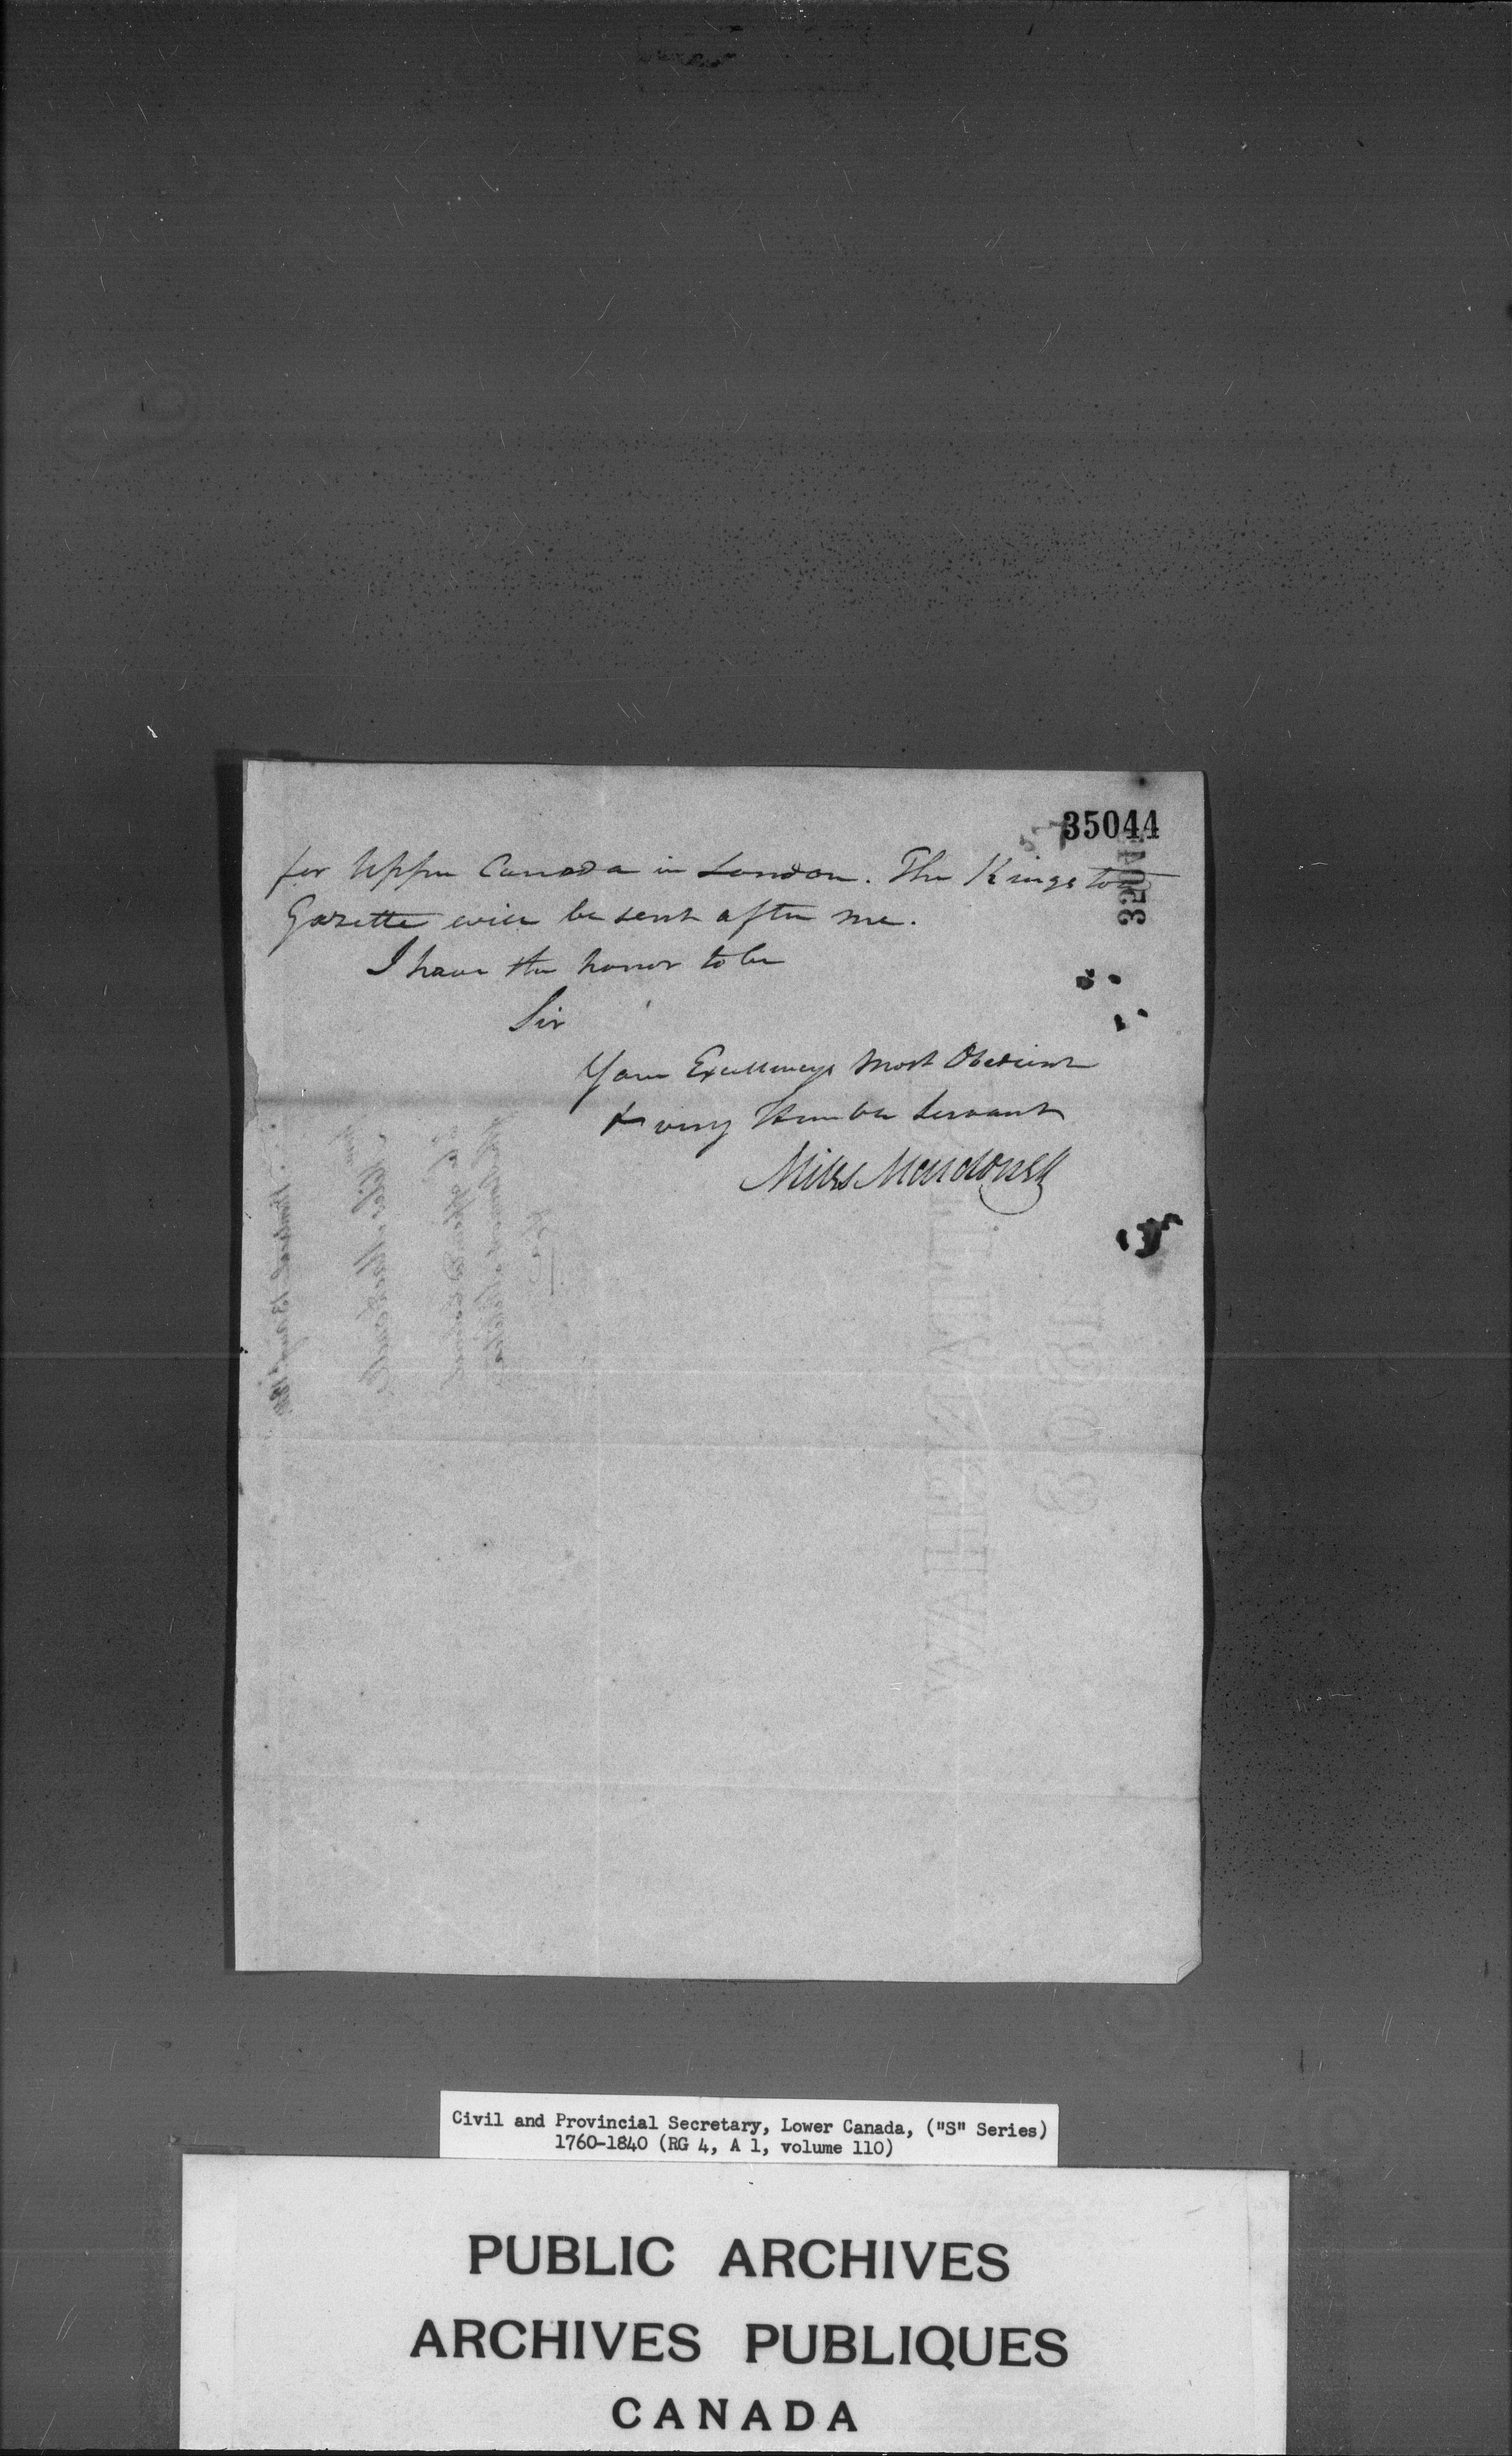 35044
for Upper Canada in London. The Kingston
Gazette will be sent after me.
I have the honor to be
Sir
Your Excellencys Most Obedient
& very Humble Servant
Miles Macdonell
Civil and Provincial Secretary, Lower Canada, ("S" Series)
1760-1840 (RG 4, A 1, volume 110)
PUBLIC ARCHIVES
ARCHIVES PUBLIQUES
CANADA